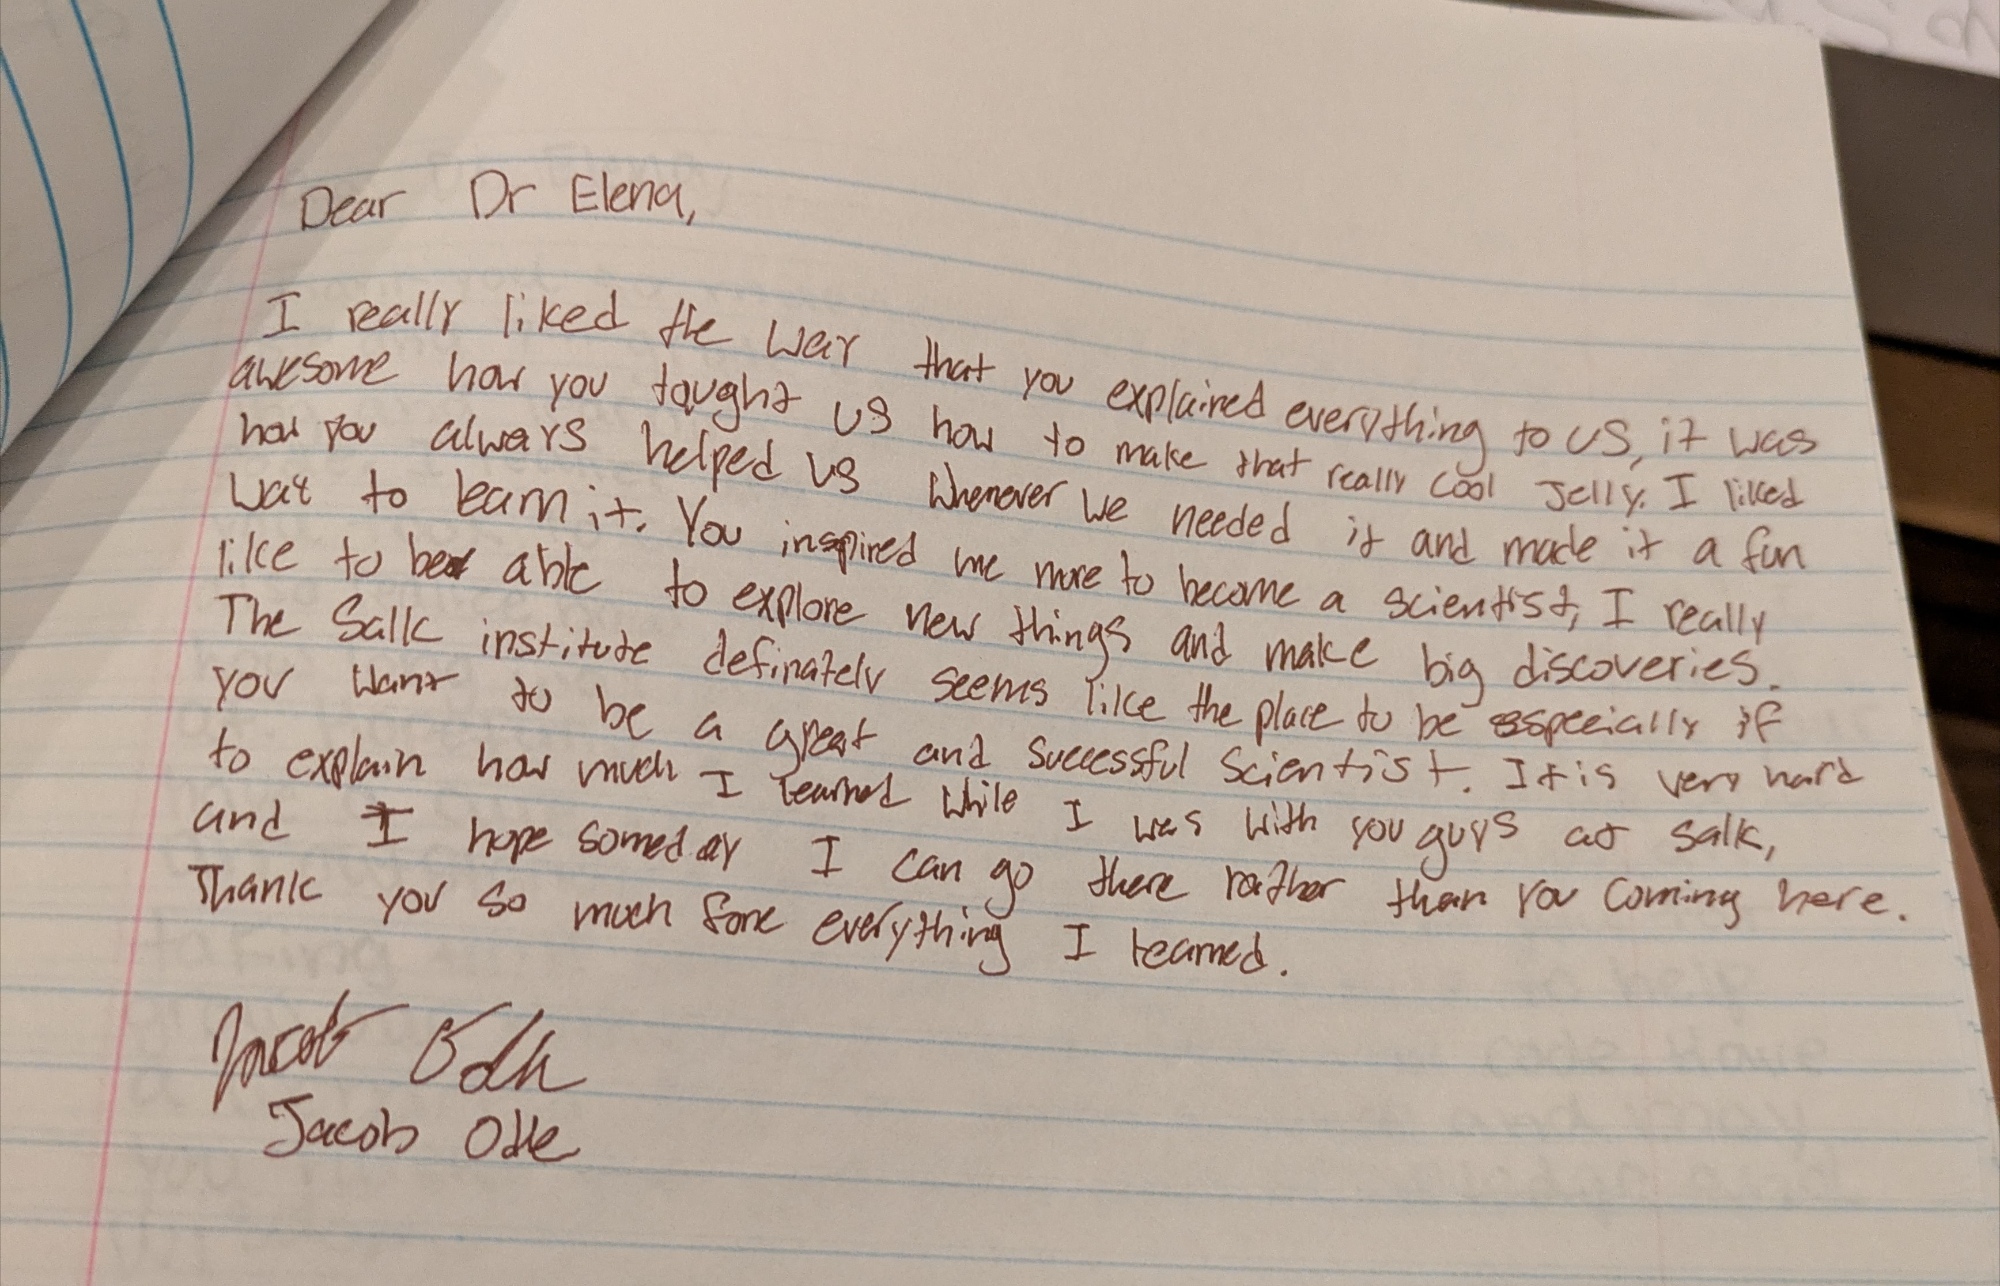 Dear Dr Elena,
I really liked the way that you explained everything to us, it was
awesome how you taught us how to make that really cool Jelly. I liked
how you always helped us whenever we needed it and made it a fun
way to learn it. You inspired me more to become a scientist, I really
like to be able to explore new things and make big discoveries.
The Salk institute definately seems like the place to be especially if
you want to be a great and successful scientist. It is very hard
to explain how much I learned while I was with you guys at salk,
and I hope someday I can go there rather than you coming here.
Thank you so much fore everything I learned.
Jacob
Jacob